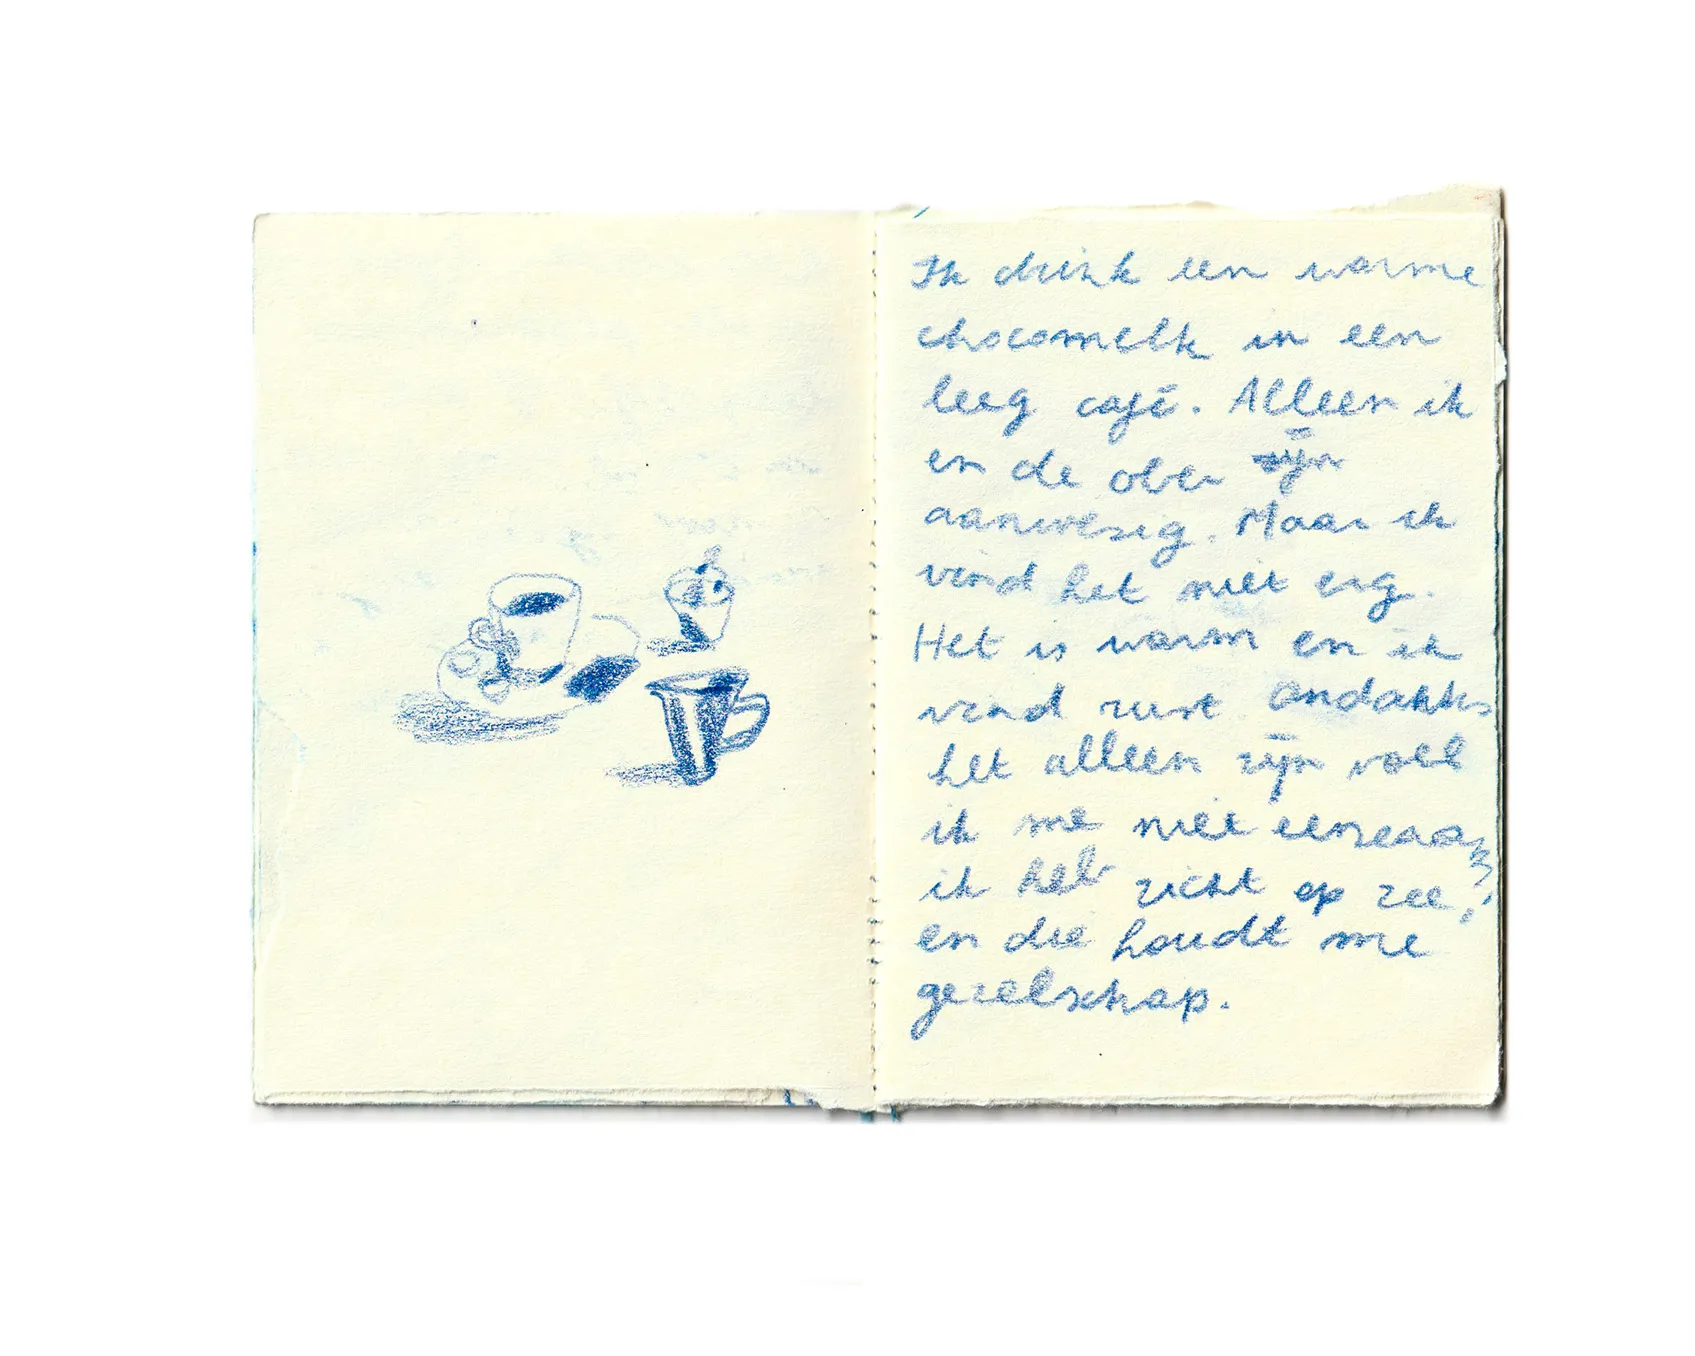 Ik drink een warme
chocomelk in een
leeg café. Alleen ik
en de ober zijn
aanwezig. Maar ik
vind het niet erg.
Het is warm en ik
vind rust ondanks
het alleen zijn voel
ik me niet eenzaam,
ik heb zicht op zee,
en die houdt me
gezelschap.